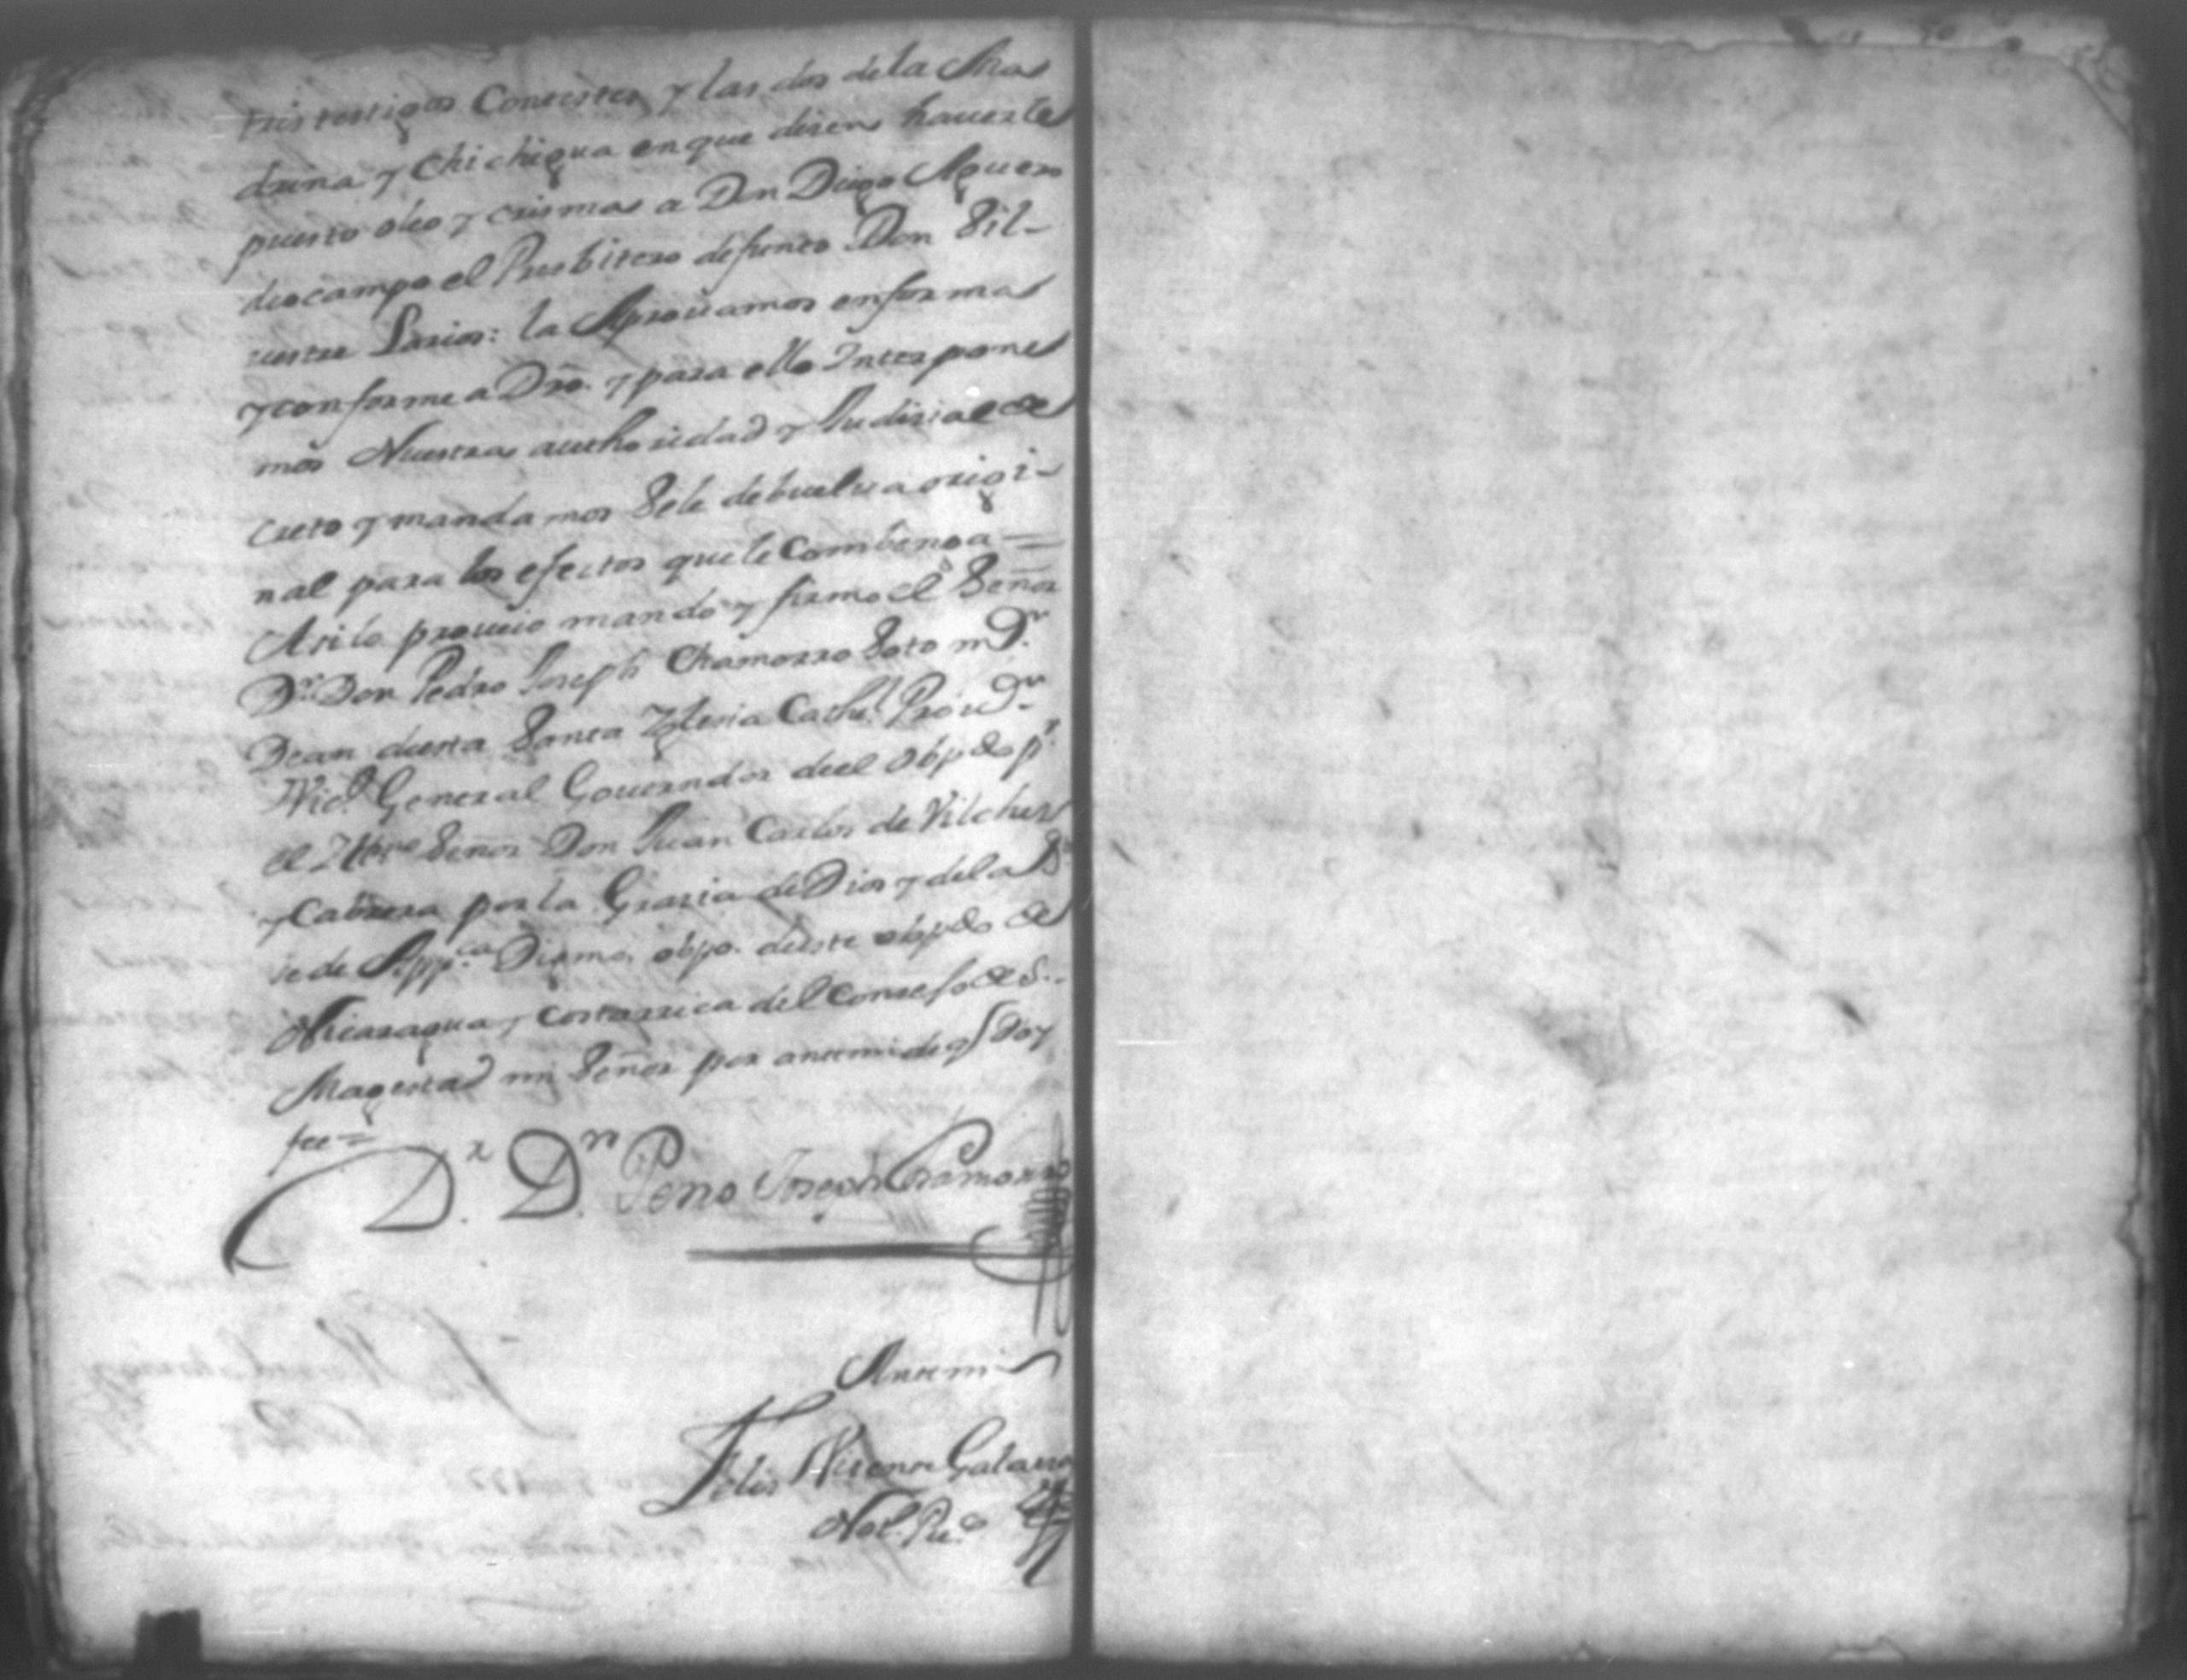 tris testigos Contestes y las dos de la Ma
drina y Chichigua en que disen hauerle
puesto oleo y crisma a Don Diego Aguero
deocampo el Presbitero defunto Don Sil-
uestre Larios: la Aprouamos enforma
y conforme a Dro. y para ello Interpone
mos Nuestra authoridad y Judisial de
creto y mandamos Sele debuelua origi-
nal para los efectos que le Combenga =
Asilo proueio mando y firmo el Señor
Dr. Don Pedro Joseph Chamorro Soto mr.
Dean desta Santa Yglesia Cathl. Prour.
Vico. General Gouernador deel obpdo pr.
el Yltre Señor Don Juan Carlos de Vilches
y Cabrera por la Grasia de Dios y de la Sta
sede Appca. Digmo. obpo. deste obpdo de
Nicaragua y Costarrica del Consejo de S.
Magestad mi Señor por antemi de q Doy
fee =
Dr. Dn. Pedro Joseph Chamorro
Antemi
Felis Visente Galarra
Not. Puco